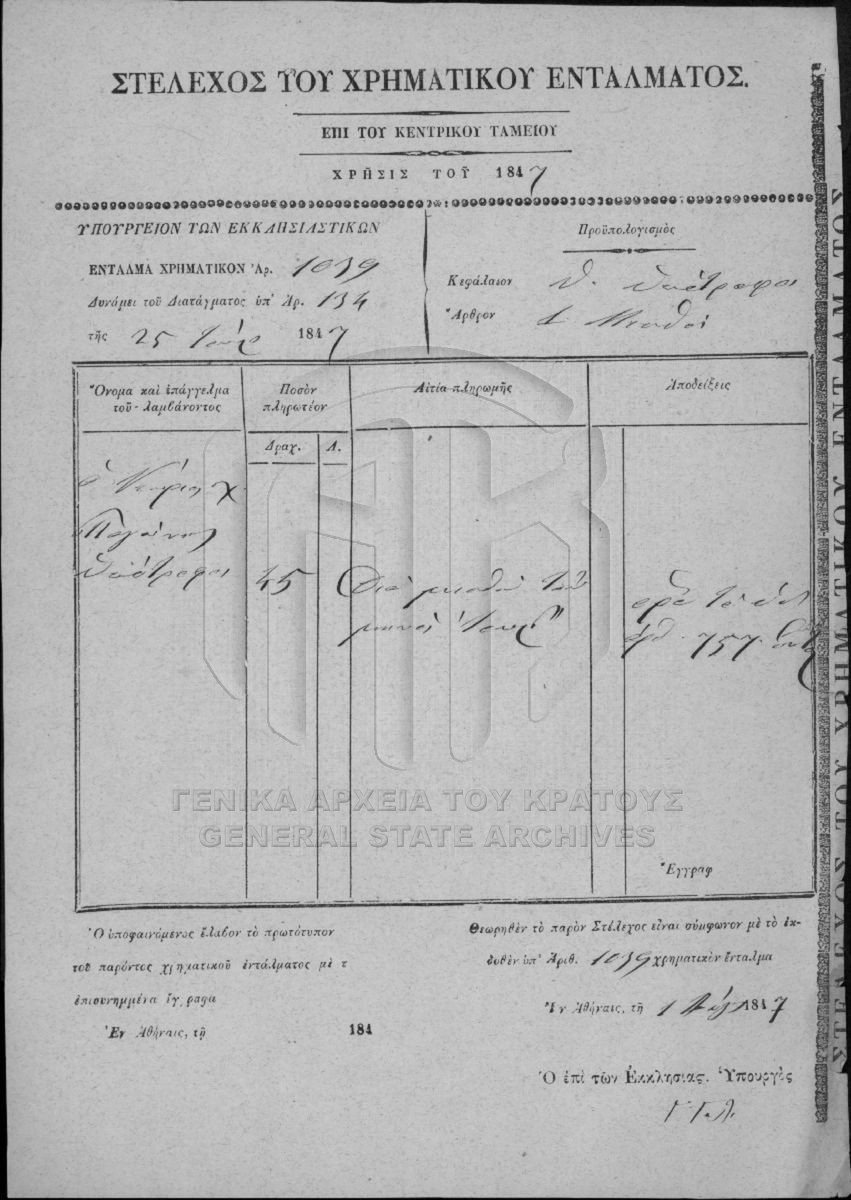 ΣΤΕΛΕΧΟΣ ΤΟΥ ΧΡΗΜΑΤΙΚΟΥ ΕΝΤΑΛΜΑΤΟΣ.
ΕΠΙ ΤΟΥ ΚΕΝΤΡΙΚΟΥ ΤΑΜΕΙΟΥ
ΧΡΗΣΙΣ ΤΟΥ 1847
ΥΠΟΥΡΓΕΙΟΝ ΤΩΝ ΕΚΚΛΗΣΙΑΣΤΙΚΩΝ
ΕΝΤΑΛΜΑ ΧΡΗΜΑΤΙΚΟΝ Ἀρ. 1039
Δυνάμει τοῦ Διατάγματος ὑπ' Ἀρ. 134
τῆς 25 1847
Προϋπολογισμὸς
Κεφάλαιον Θ. Ὑπότροφοι
Ἄρθρον Μισθοί
Ὄνομα καὶ ἐπάγγελμα
τοῦ λαμβάνοντος
Ποσὸν
πληρωτέον
Αἰτία πληρωμῆς
Ἀποδείξεις
Δραχ.
Λ.
ὁ
Ὑπότροφος
45
Διὰ μισθὸν τοῦ
μηνὸς
ὅρα τὸ
757
Ἔγγραφ
ΓΕΝΙΚΑ ΑΡΧΕΙΑ ΤΟΥ ΚΡΑΤΟΥΣ
GENERAL STATE ARCHIVES
Ὁ ὑποφαινόμενος ἔλαβον τὸ πρωτότυπον
τοῦ παρόντος χρηματικοῦ ἐντάλματος μὲ τ
ἐπισυνημμένα ἔγγραφα
Ἐν Ἀθήναις, τῇ 184
Θεωρηθὲν τὸ παρὸν Στέλεχος εἶναι σύμφωνον μὲ τὸ ἐκ-
δοθὲν ὑπ' Ἀριθ. 1039 χρηματικὸν ἔνταλμα
Ἐν Ἀθήναις, τῇ 1 1847
Ὁ ἐπὶ τῶν Ἐκκλησιας. Ὑπουργὸς
ΣΤΕΛΕΧΟΣ ΤΟΥ ΧΡΗΜΑΤΙΚΟΥ ΕΝΤΑΛΜΑΤΟΣ